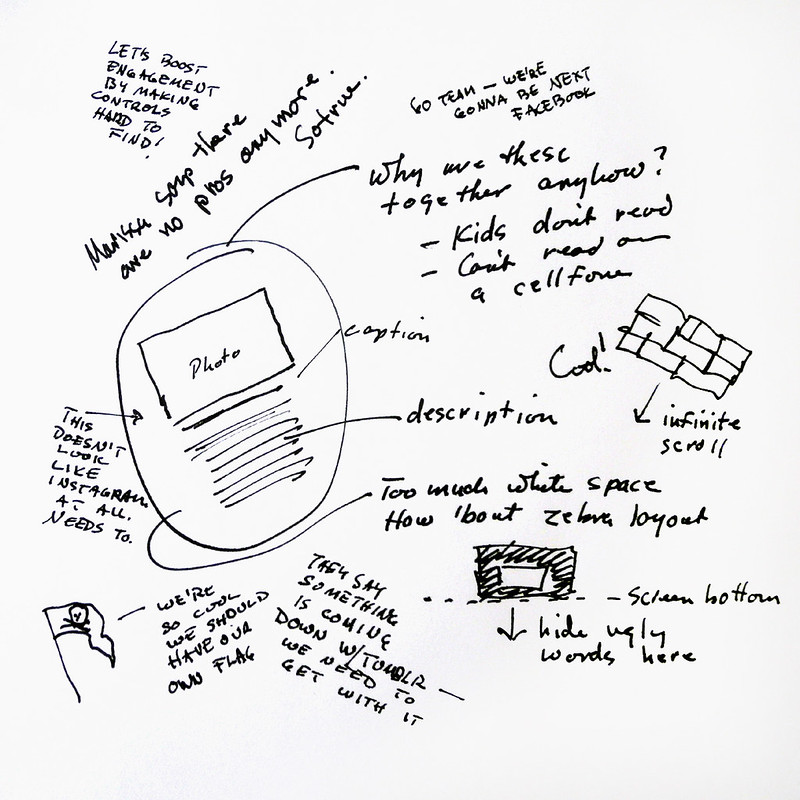 LET'S BOOST
ENGAGEMENT
BY MAKING
CONTROLS
HARD TO
FIND!
Marissa says there
are no pros anymore.
So true.
GO TEAM — WE'RE
GONNA BE NEXT
FACEBOOK
Why are these
together anyhow?
– Kids don't read
– Can't read on
a cell fone
Photo
caption
Cool!
infinite
scroll
description
THIS
DOESN'T
LOOK
LIKE
INSTAGRAM
AT ALL.
NEEDS TO.
Too much white space
How 'bout zebra layout
screen bottom
hide ugly
words here
WE'RE
SO COOL
WE SHOULD
HAVE OUR
OWN FLAG
THEY SAY
SOMETHING
IS COMING
DOWN W/TUMBLR —
WE NEED TO
GET WITH IT